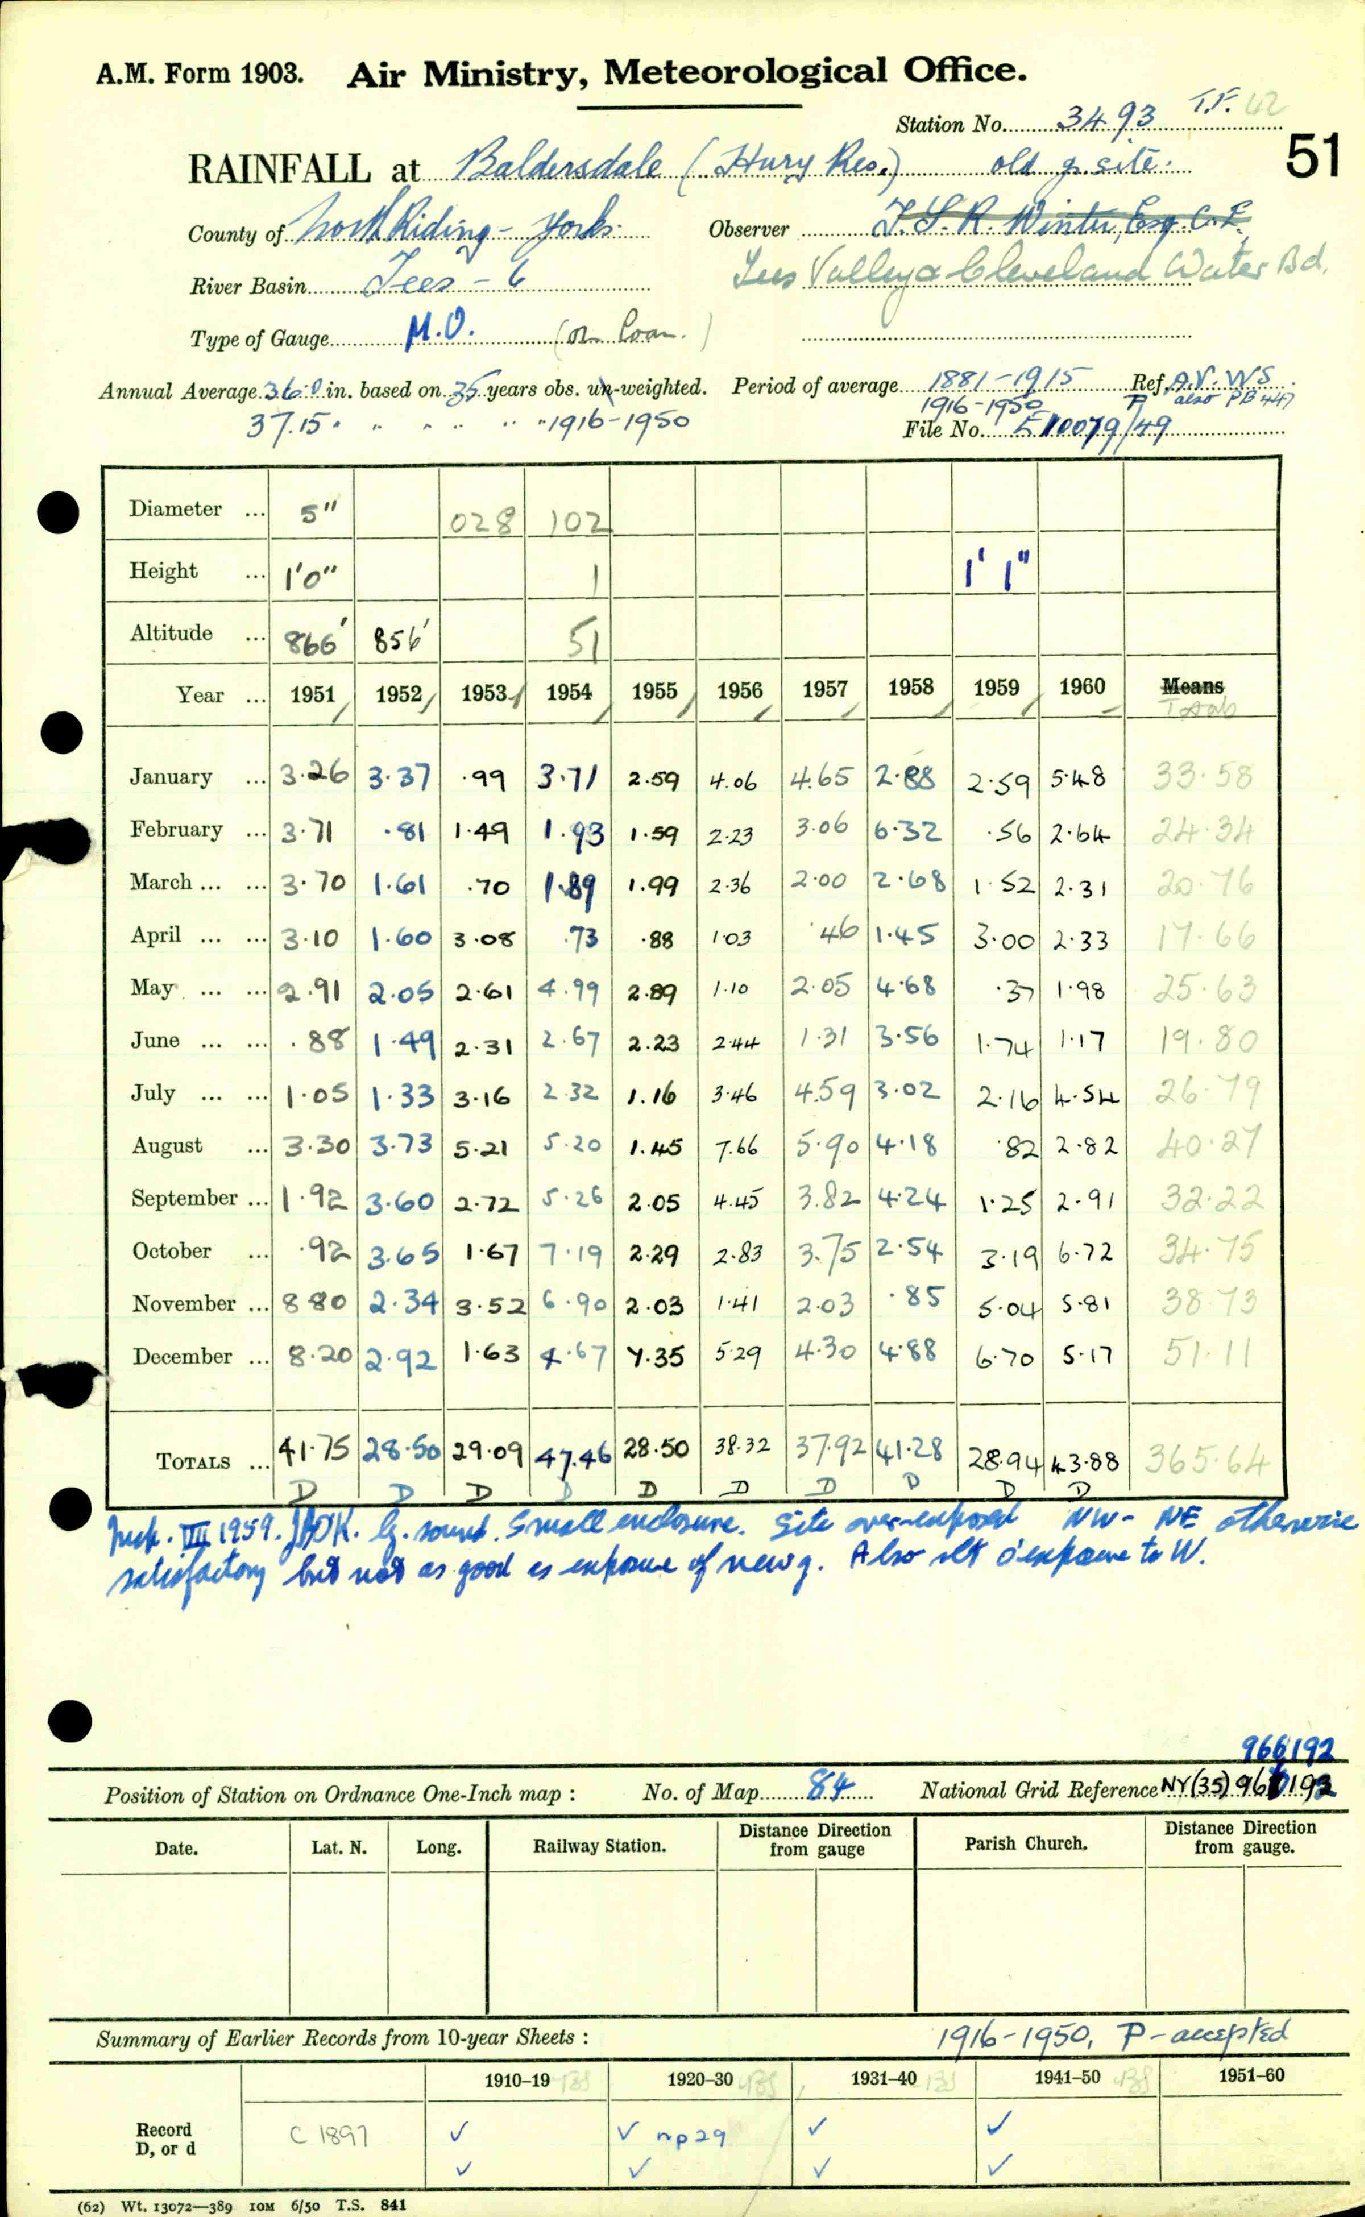 A.M. Form 1903. Air Ministry, Meteorological Office.
Station No. 3493 T.F. 42
51
RAINFALL at Baldersdale (Hury Res.) old g. site.
County of North Riding - Yorks. Observer T.S.R. Winter, Esq. C.E.
River Basin Tees - 6 Tees Valley & Cleveland Water Bd.
Type of Gauge M.O. (on loan.)
Annual Average 36.0 in. based on 35 years obs. un-weighted. Period of average 1881-1915 Ref. A.V. WS
1916-1950 also PB 447
37.15 " " " " " " 1916-1950 File No. 10079/49
Diameter ... 5" 028 102
Height ... 1'0" 1 1' 1"
Altitude ... 866' 856' 51
Year ... 1951 1952 1953 1954 1955 1956 1957 1958 1959 1960 Means
Totals
January ... 3.26 3.37 .99 3.71 2.59 4.06 4.65 2.88 2.59 5.48 33.58
February ... 3.71 .81 1.49 1.93 1.59 2.23 3.06 6.32 .56 2.64 24.34
March ... ... 3.70 1.61 .70 1.89 1.99 2.36 2.00 2.68 1.52 2.31 20.76
April ... ... 3.10 1.60 3.08 .73 .88 1.03 .46 1.45 3.00 2.33 17.66
May ... ... 2.91 2.05 2.61 4.99 2.89 1.10 2.05 4.68 .37 1.98 25.63
June ... ... .88 1.49 2.31 2.67 2.23 2.44 1.31 3.56 1.74 1.17 19.80
July ... ... 1.05 1.33 3.16 2.32 1.16 3.46 4.59 3.02 2.16 4.54 26.79
August ... 3.30 3.73 5.21 5.20 1.45 7.66 5.90 4.18 .82 2.82 40.27
September ... 1.92 3.60 2.72 5.26 2.05 4.45 3.82 4.24 1.25 2.91 32.22
October ... .92 3.65 1.67 7.19 2.29 2.83 3.75 2.54 3.19 6.72 34.75
November ... 8.80 2.34 3.52 6.90 2.03 1.41 2.03 .85 5.04 5.81 38.73
December ... 8.20 2.92 1.63 4.67 7.35 5.29 4.30 4.88 6.70 5.17 51.11
TOTALS ... 41.75 28.50 29.09 47.46 28.50 38.32 37.92 41.28 28.94 43.88 365.64
D D D D D D D D D D
Insp. VIII 1959. G. sound. Small enclosure. Site over-exposed NW - NE otherwise
satisfactory but not as good as exposure of new g. Also slt o'exposure to W.
966192
Position of Station on Ordnance One-Inch map : No. of Map 84 National Grid Reference NY(35) 966192
Date. Lat. N. Long. Railway Station. Distance Direction from gauge Parish Church. Distance Direction from gauge.
Summary of Earlier Records from 10-year Sheets : 1916-1950, P-accepted
1910-19 1920-30 1931-40 1941-50 1951-60
Record D, or d C 1897 ✓ ✓ np29 ✓ ✓
✓ ✓ ✓ ✓
(62) Wt. 13072—389 10M 6/50 T.S. 841